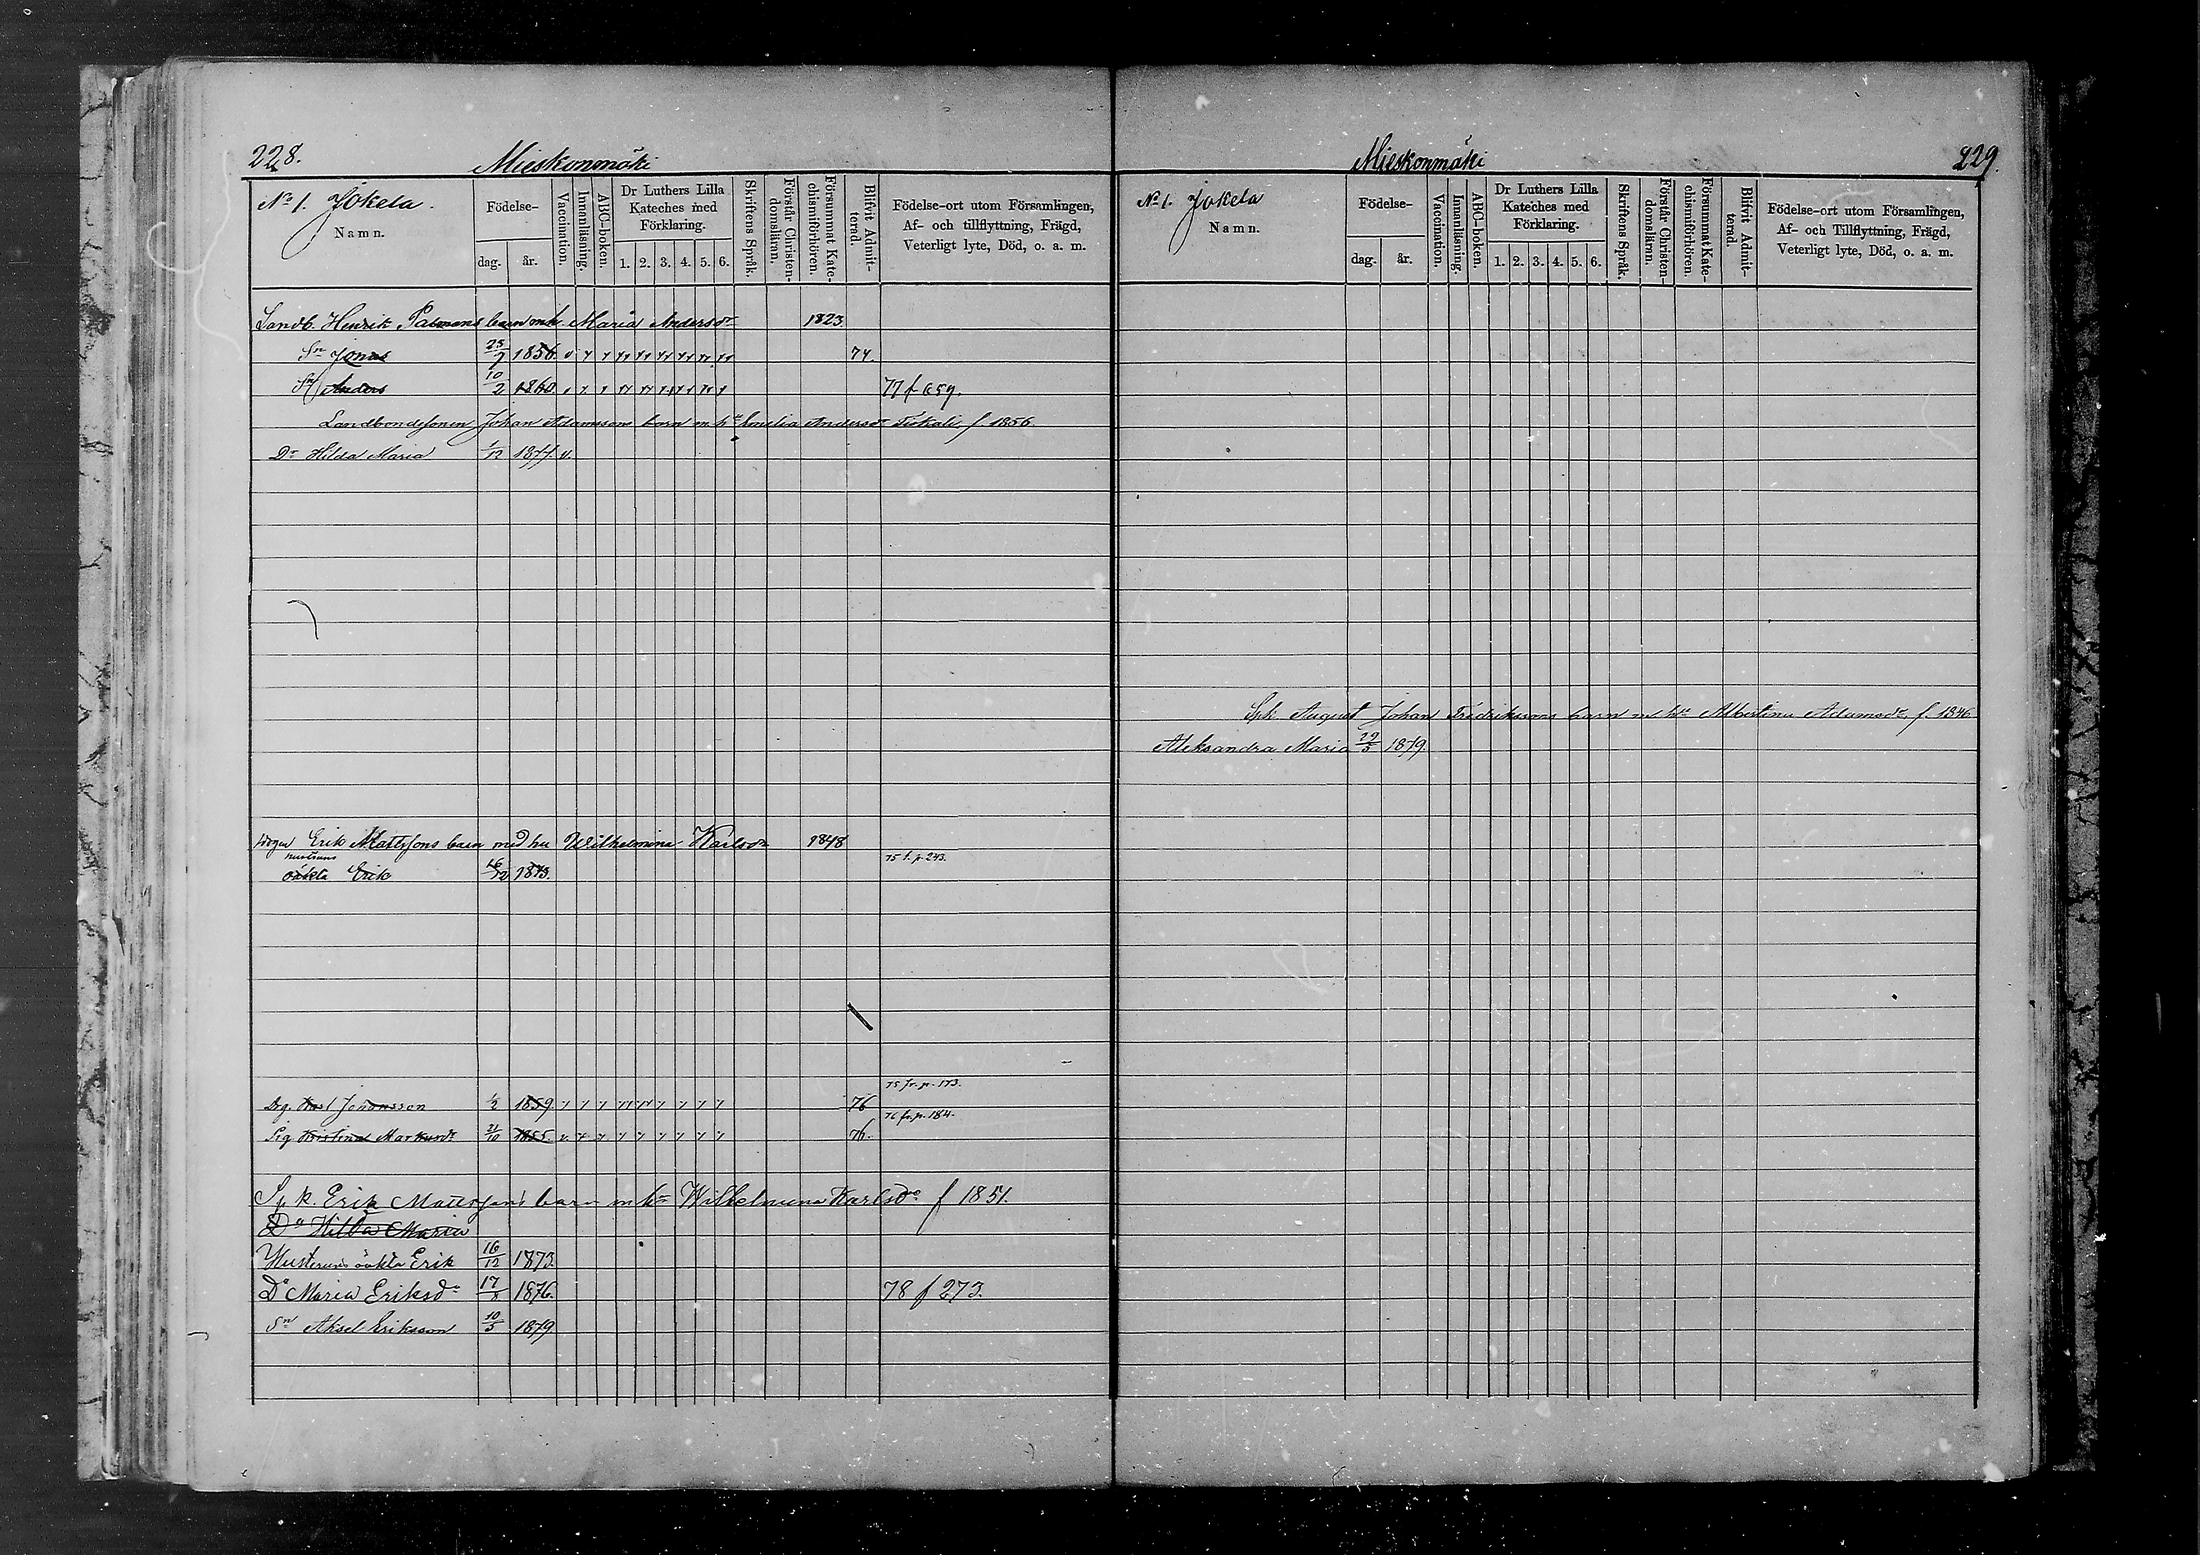 228.
Mieskonmäki
No 1. Jokela.
Namn.
Födelse-
dag. år.
Vaccination.
Innanläsning.
ABC-boken.
Dr Luthers Lilla
Kateches med
Förklaring.
1. 2. 3. 4. 5. 6.
Skriftens Språk.
Förstår Christen-
domslärnn.
Försummat Kate-
chismiförhören.
Blifvit Admit-
terad.
Födelse-ort utom Församlingen,
Af- och tillflyttning, Frägd,
Veterligt lyte, Död, o. a. m.
Landb. Henrik barn mh Maria Andersdr 1823.
Sn Jonas 25/7 1856. 74.
Sn Anders 10/2 1860. 77 f 659.
Landbondesonen Johan Adamssons barn m hu Andersdr f 1856
Dr Hilda Maria 1/12 1877. v.
Erik Mattssons barn med hu Wilhelmina Karlsdr 1848
hustruns 75 t. p. 243.
oäkta Erik 16/12 1873.
75 fr. p. 173.
Drg. Karl Johansson 1/2 1859 76
76 fr. p. 184.
Pig. Kristina Markusdr 21/10 1855. 76.
Spk. Erik Mattssons barn m hu Wilhelmina Karlsdr f 1851.
Dr Hilda Maria
Hustruns oäkta Erik 16/12 1873.
Dr Maria Eriksdr 17/8 1876. 78 f 273.
Sn Aksel Eriksson 10/5 1879
229.
Mieskonmäki
No 1. Jokela
Namn.
Födelse-
dag. år.
Vaccination.
Innanläsning.
ABC-boken.
Dr Luthers Lilla
Kateches med
Förklaring.
1. 2. 3. 4. 5. 6.
Skriftens Språk.
Förstår Christen-
domslärnn.
Försummat Kate-
chismiförhören.
Blifvit Admit-
terad.
Födelse-ort utom Församlingen,
Af- och Tillflyttning, Frägd,
Veterligt lyte, Död, o. a. m.
Spk August Johan Fredrikssons barn m hu Albertina Adamsdr f. 1846
Aleksandra Maria 29/5 1879.